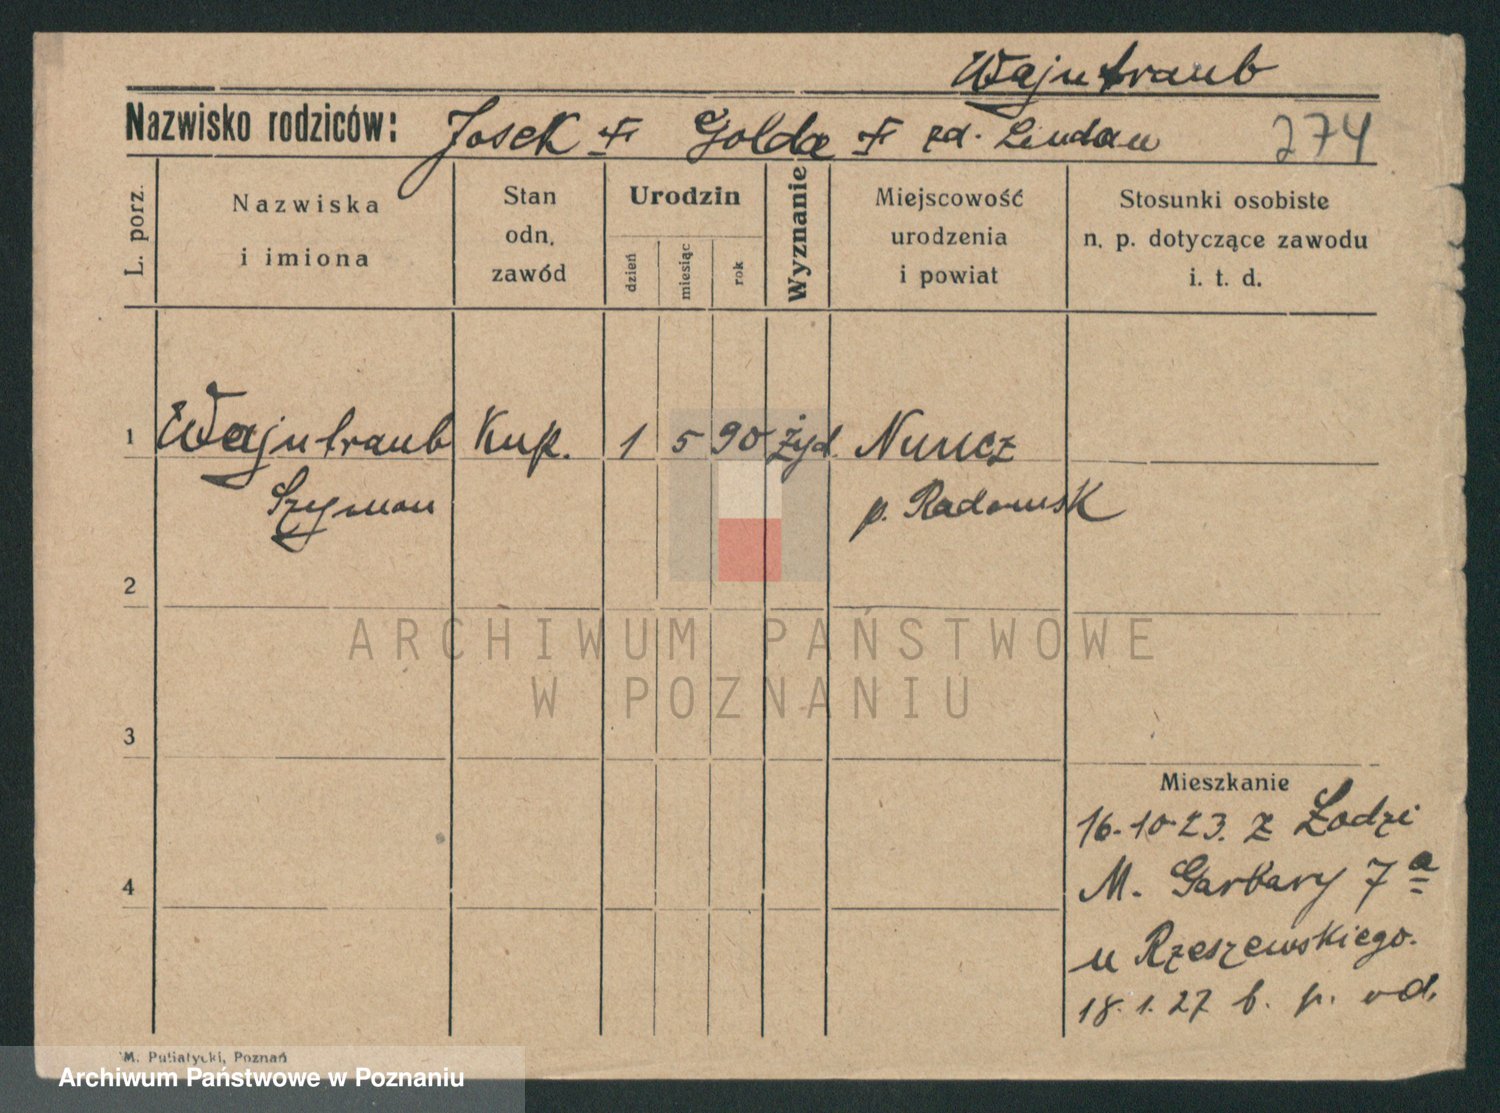 Wajntraub
Nazwisko rodziców: Josek Golda zd. Lindau 274
L. porz.
Nazwiska
i imiona
Stan
odn.
zawód
Urodzin
dzień
miesiąc
rok
Wyznanie
Miejscowość
urodzenia
i powiat
Stosunki osobiste
n. p. dotyczące zawodu
i. t. d.
1 Wajntraub Kup. 1 5 90 żyd.
Szymon
p. Radomsk
2
3
4
ARCHIWUM PAŃSTWOWE
W POZNANIU
Mieszkanie
16.10.23. z Łodzi
M. Garbary 7a
u Rzeszewskiego.
18.1.27 b. p. od.
M. Putiatycki, Poznań
Archiwum Państwowe w Poznaniu